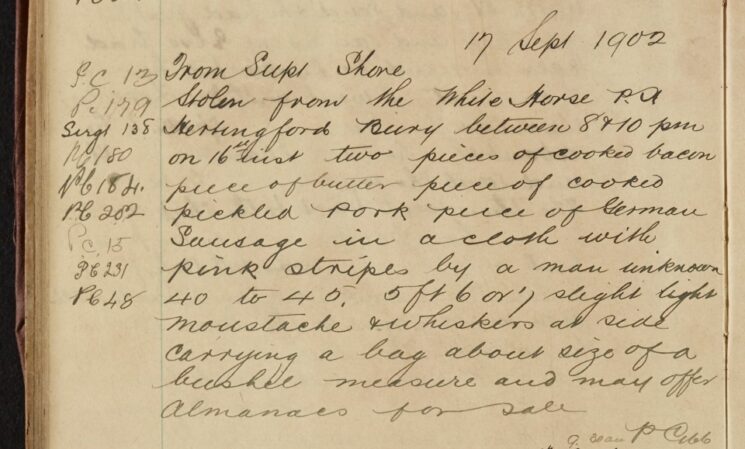 17 Sept 1902
P.C 13 From Supt Shore
Pc 179 Stolen from the White Horse P.H
Sergt 138 Hertingford Bury between 8 & 10 pm
PC 180 on 16th inst two pieces of cooked bacon
PC 184. piece of butter piece of cooked
PC 202 pickled Pork piece of German
Pc 15 Sausage in a cloth with
PC 231 pink stripes by a man unknown
PC 48 40 to 45, 5 ft 6 or 7, slight light
moustache & whiskers at side
carrying a bag about size of a
bushel measure and may offer
Almanacs for sale
P Cobb